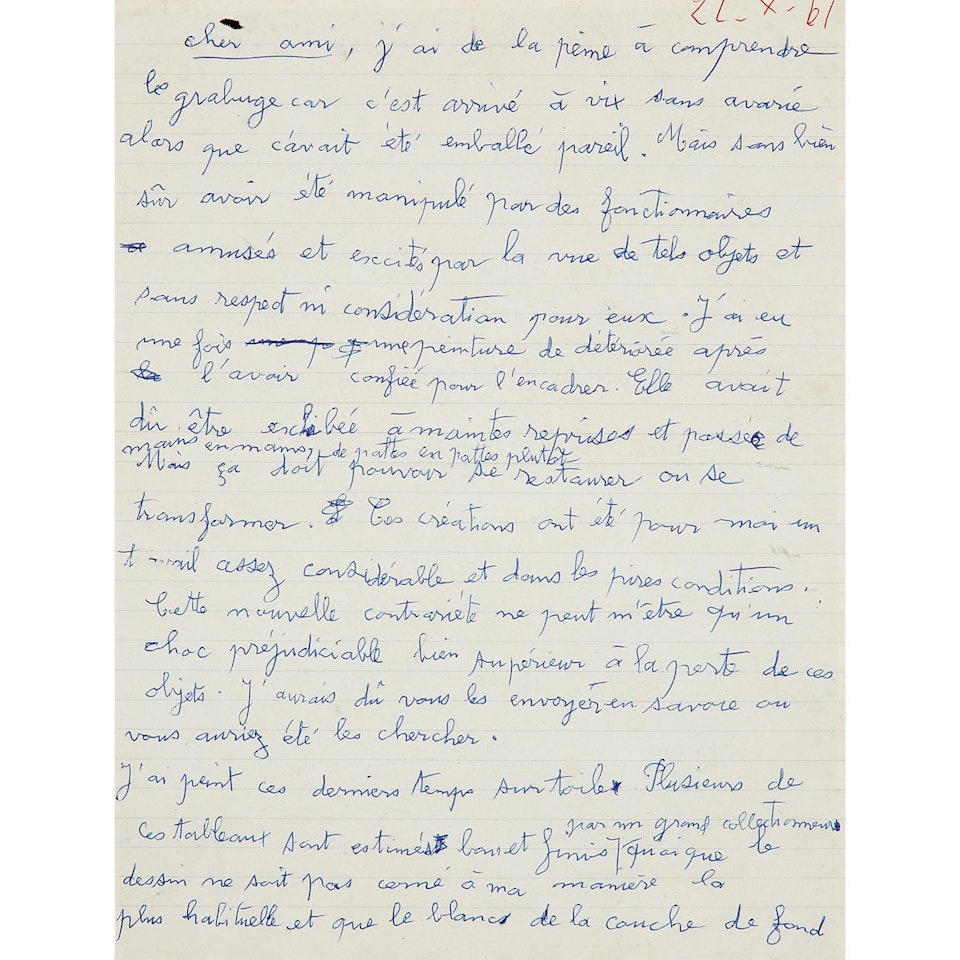 22-X-61
cher ami, j'ai de la peine à comprendre
le grabuge car c'est arrivé à vix sans avarie
alors que c'avait été emballé pareil. Mais sans bien
sûr avoir été manipulé par des fonctionnaires
amusés et excités par la vue de tels objets et
sans respect ni considération pour eux. J'ai eu
une fois une peinture de détériorée après
l'avoir confiée pour l'encadrer. Elle avait
dû être exhibée à maintes reprises et passée de
mains en mains, de pattes en pattes plutôt
Mais ça doit pouvoir se restaurer ou se
transformer. Ces créations ont été pour moi un
travail assez considérable et dans les pires conditions.
Cette nouvelle contrariété ne peut m'être qu'un
choc préjudiciable bien supérieur à la perte de ces
objets. J'aurais dû vous les envoyer en savoie ou
vous auriez été les chercher.
J'ai peint ces derniers temps sur toile. Plusieurs de
par un grand collectionneur
ces tableaux sont estimés bons et finis quoique le
dessin ne soit pas cerné à ma manière la
plus habituelle et que le blanc de la couche de fond